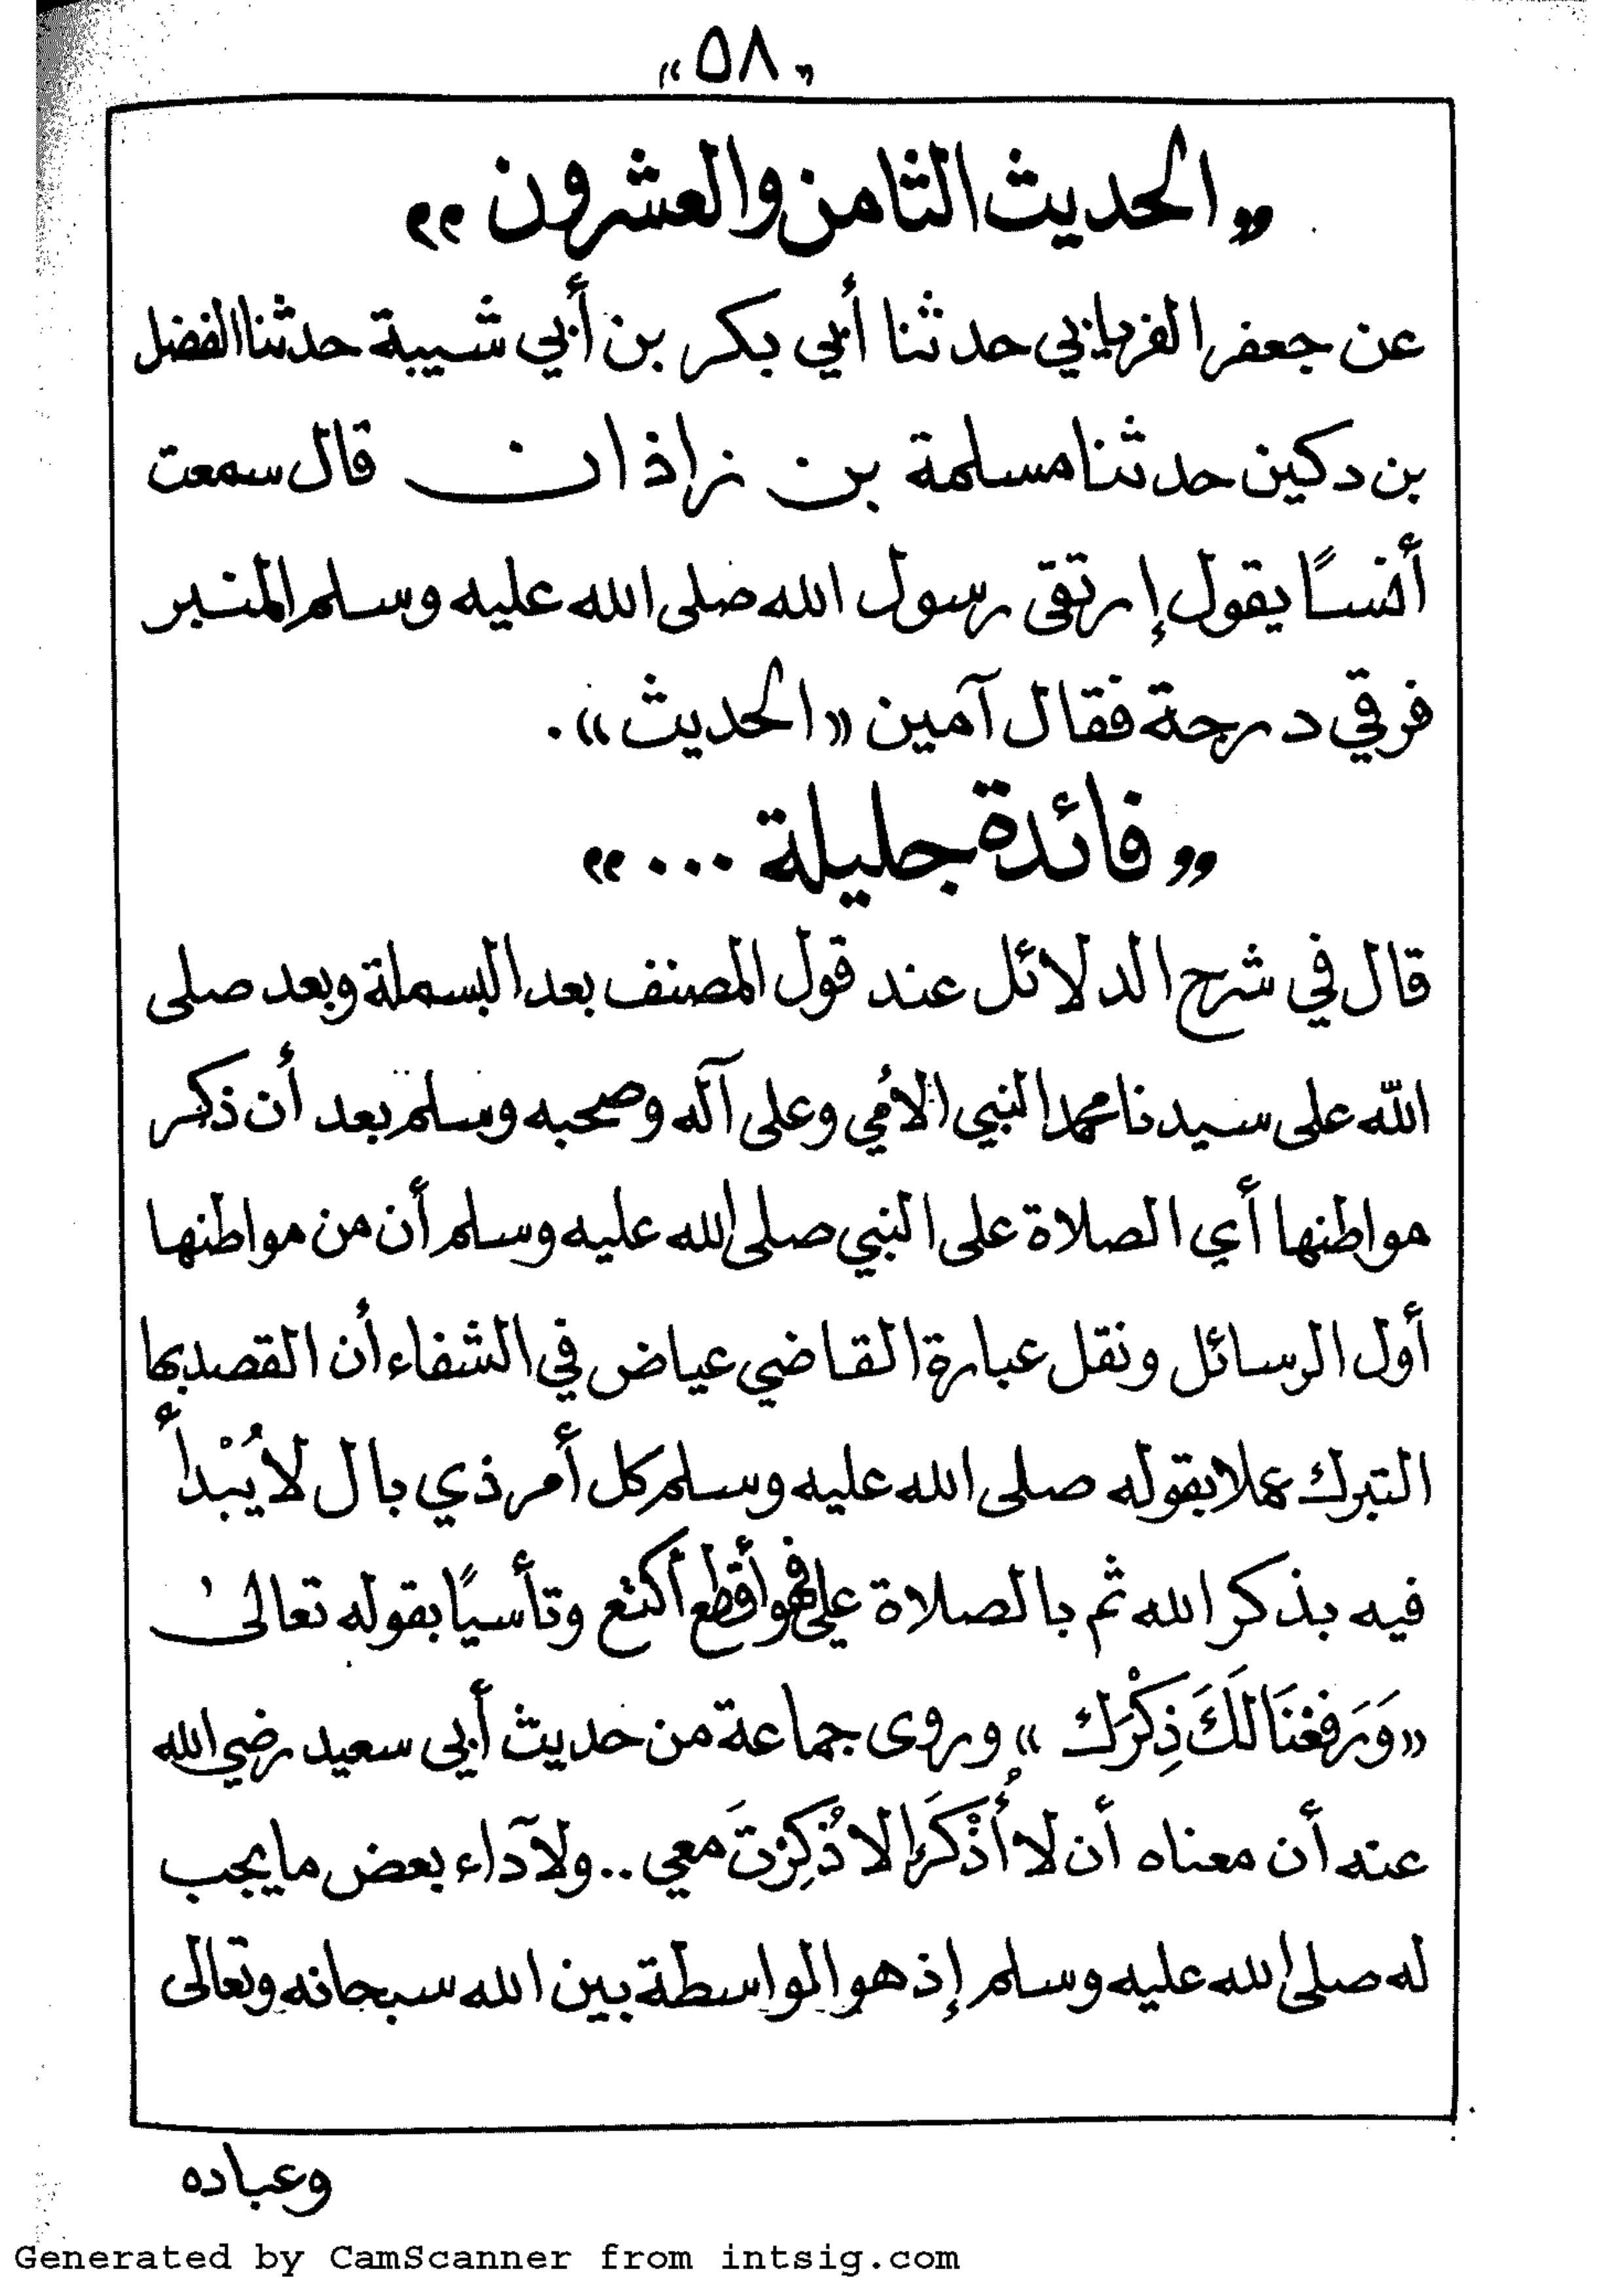 «٥٨»
«الحديث الثامن والعشرون»
عن جعفر الفريابي حدثنا أبي بكر بن أبي شيبة حدثنا الفضل
بن دكين حدثنا مسلمة بن زاذان قال سمعت
أنسًا يقول إرتقى رسول الله صلى الله عليه وسلم المنبر
فرقي درجة فقال آمين «الحديث».
«فائدة جليلة ...»
قال في شرح الدلائل عند قول المصنف بعد البسملة وبعد صلى
اللّه على سيدنا محمد النبي الأمي وعلى آله وصحبه وسلم بعد أن ذكر
مواطنها أي الصلاة على النبي صلى الله عليه وسلم أن من مواطنها
أول الرسائل ونقل عبارة القاضي عياض في الشفاء أن القصد بها
التبرك عملا بقوله صلى الله عليه وسلم كل أمر ذي بال لا يُبْدأ
فيه بذكر الله ثم بالصلاة علي فهو أقطع أكتع وتأسيًا بقوله تعالى
«وَرَفعْنَا لَكَ ذِكْرَك» وروى جماعة من حديث أبى سعيد رضي الله
عنه أن معناه أن لا أُذْكَرَ إلا ذُكِرْتَ معي .. ولآداء بعض ما يجب
له صلى الله عليه وسلم إذ هو الواسطة بين الله سبحانه وتعالى
وعباده
Generated by CamScanner from intsig.com